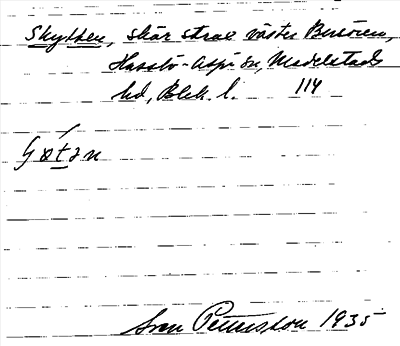 Skytten, skär strax väster Bersören,
Hasslö-Aspö sn, Medelstads
hd, Blek. l. 114
Sven Pettersson 1935